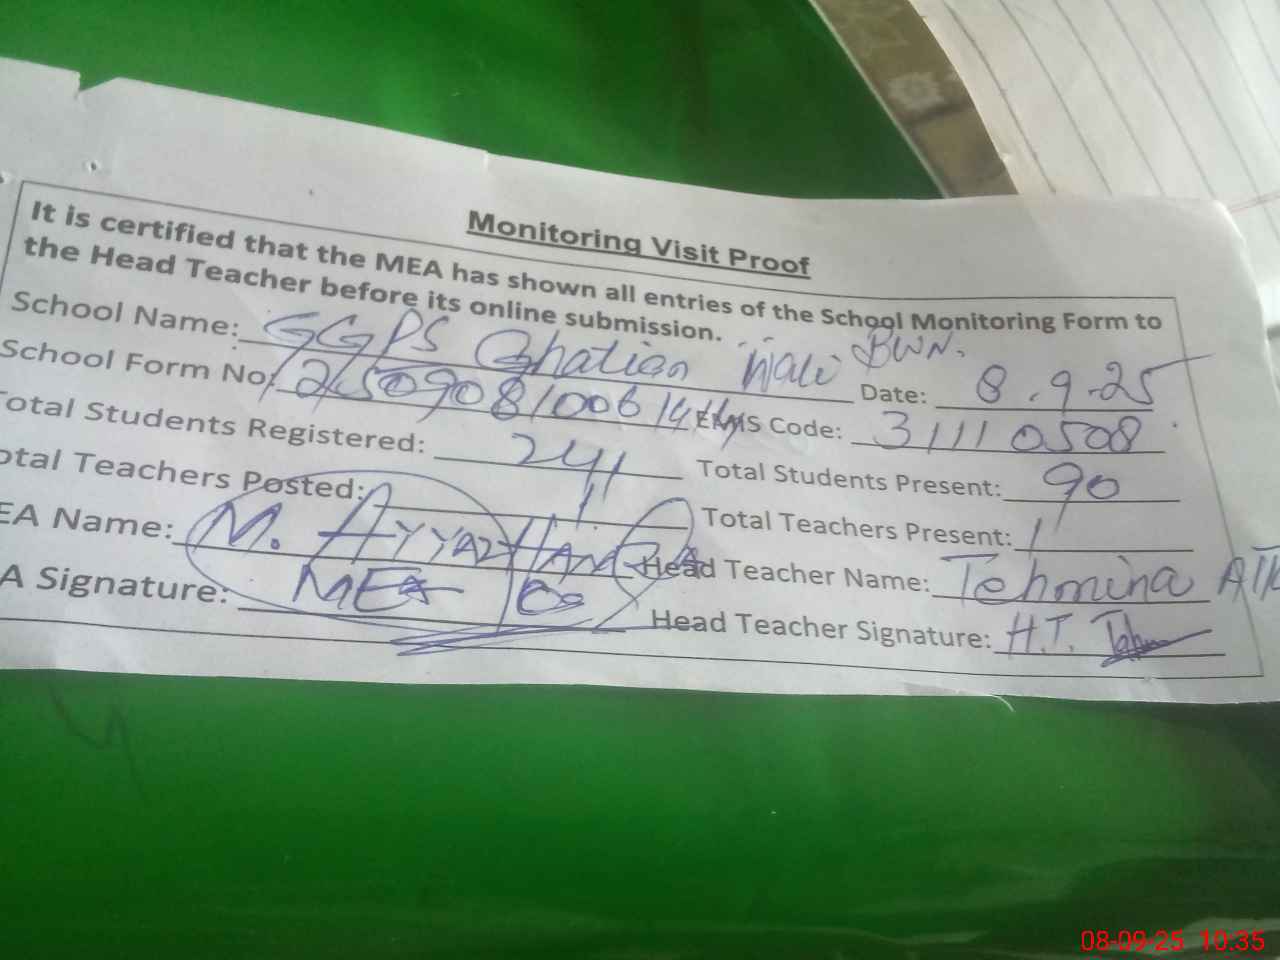 Monitoring Visit Proof
It is certified that the MEA has shown all entries of the School Monitoring Form to
the Head Teacher before its online submission.
School Name: GGPS Ghatian Wali BWN. Date: 8.9.25
School Form No: EMIS Code: 31110508
otal Students Registered: 241 Total Students Present: 90
otal Teachers Posted: 1 Total Teachers Present: 1
EA Name: M. AYYAZ Head Teacher Name: Tehmina
A Signature: MEA Head Teacher Signature: H.T.
08-09-25 10:35